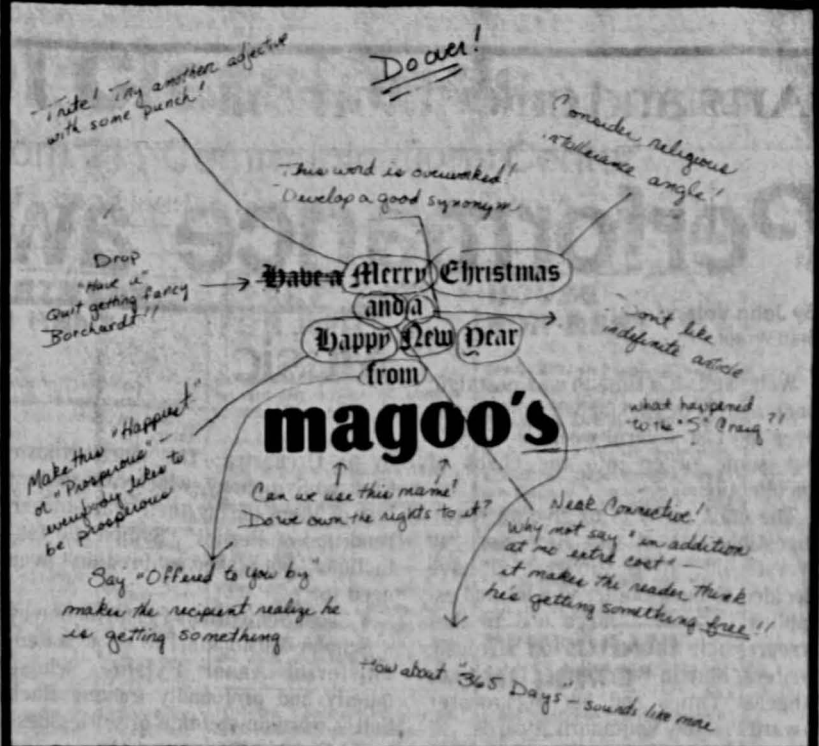 Do over!
Trite! Try another adjective
with some punch!
Consider religious
intollerance angle!
This word is overworked!
Develop a good synonym
Drop
"Have a"
Quit getting fancy
Borchardt!!
Have a Merry Christmas
and a
Happy New Year
from
magoo's
Don't like
indefinite article
what happened
to the "S" Craig?!
Make this "Happiest"
or "Prosperous" –
everybody likes to
be prosperous
Can we use this name!
Do we own the rights to it?
Weak Connective!
Why not say "in addition
at no extra cost" –
it makes the reader think
he's getting something free!!
Say "Offered to you by
makes the recipient realize he
is getting something
How about "365 Days" – sounds like more